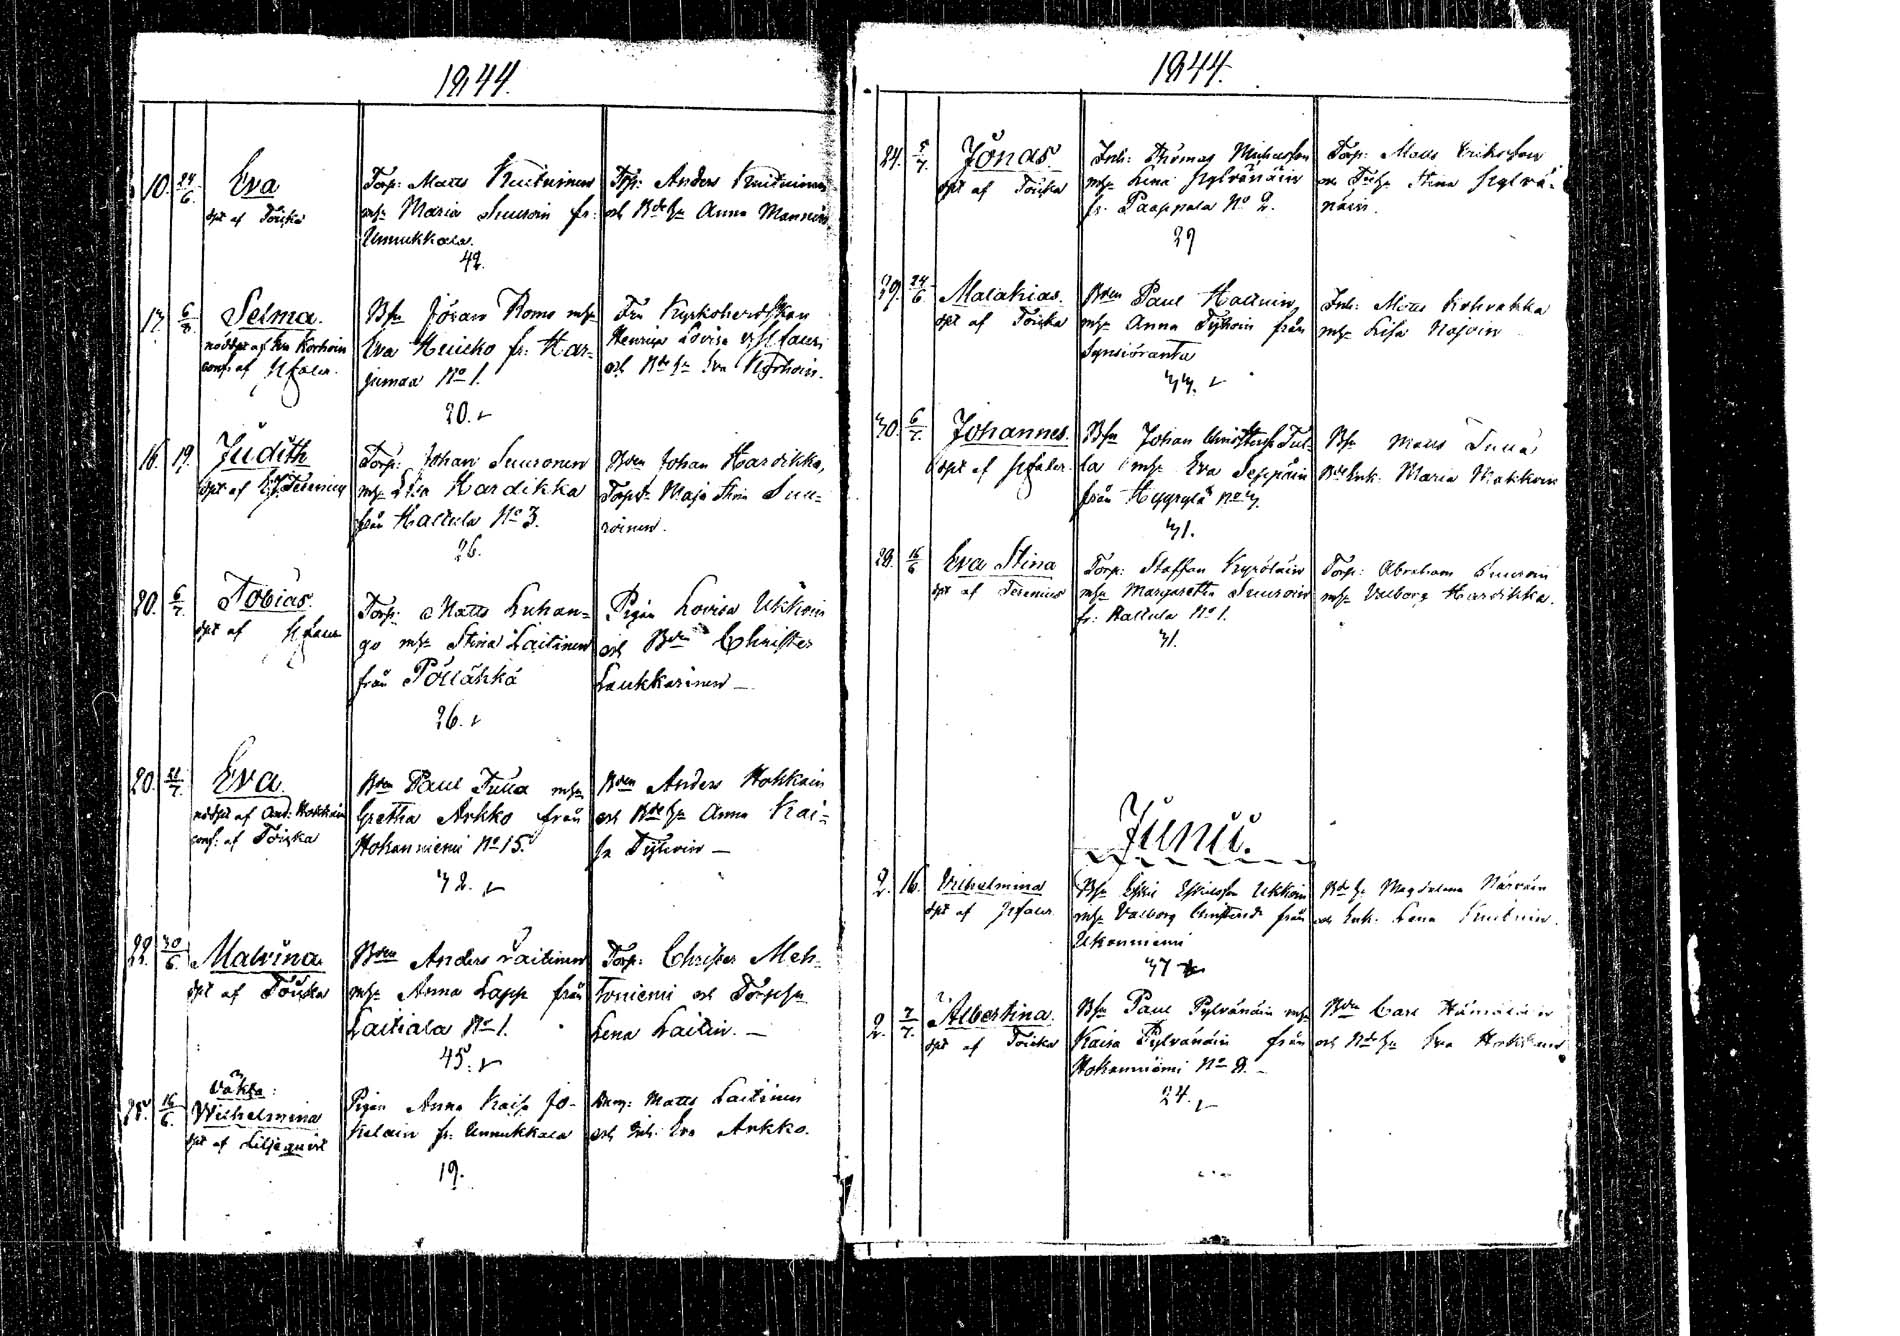 1844.
10. 24/6 Eva
döpt af Töiska
Torp: Matts Kuitunen
mhr Maria Suuroin fr:
Unnukkala.
42.
Torp: Anders Kuitunen
och Bdehr Anna Manninen
17. 6/7 Selma.
döpt af Eva Korhoin
conf: af
Bsn Jöran Roms mhr
Eva Heicko fr: Har-
jumaa No 1.
20.
Fru Kyrkoherdskan
Henrica Lovisa
och Bdehr Eva Korhoin.
16. 19. Judith
döpt af Terenius
Torp: Johan Suuronen
mhr Lisa Kardikka
från Hallula No 3.
26.
Bden Johan Kardikka,
Maja Stina Suu-
roinen.
20. 6/7 Tobias.
döpt af
Torp: Matts Luhan-
go mhr Stina Laitinen
från Pöllähkä
26.
Pigan Lovisa Ukkoin
och Bden Christer
Laukkarinen —
20. 21/7 Eva.
nöddöpt af And: Hokkain
conf: af Töiska
Bden Paul Tulla mhr
Gretha Arkko från
Hokanniemi No 15.
32.
Bden Anders Hokkain
och Bdehr Anna Kai-
sa —
22. 30/6 Malvina
döpt af Töiska
Bden Anders Laitinen
mhr Anna Lapp från
Laitiala No 1.
45.
Torp: Christer Meh-
toniemi och Torphr
Lena Laitin. —
25. 16/6 oäkta:
Wilhelmina
döpt af Liljeqvist
Pigan Anna Kaisa Jo-
kelain fr: Unnukkala
19.
Dräng: Matts Laitinen
och Inh: Eva Arkko.
1844.
24. 5/7 Jonas.
döpt af Töiska
Inh: Thomas Michelsson
mhr Lena Pylvänäin
fr: Paappala No 2.
29
Torp: Matts Eriksson
och Stina Pylvä-
näin.
29. 24/6 Malakias.
döpt af Töiska
Bden Paul Hallnin
mhr Anna Tyhoin från
Synsiöranta
33.
Inh: Matts Kohvakka
mhr Lisa
30. 6/7 Johannes.
döpt af
Bsn Johan Tul-
la mhr Eva Seppäin
från Hyyrylä No 3.
31.
Bsn Matts Tulla
Bde Enk: Maria Makkoin
28. 16/6 Eva Stina
döpt af Terenius
Torp: Staffan Kyröläin
mhr Margaretha Suuroin
fr: Hallula No 1.
31.
Torp: Abraham Suuroin
mhr Valborg Kardikka.
Junii.
2. 16. Vilhelmina
döpt af
Bsn Eskil Eskilsson Ukkoin
mhr Valborg från
Ukonniemi
37
Bdehr Magdalena Närväin
och Enk: Lena Kuitunin.
2. 7/7 Albertina.
döpt af Töiska
Bsn Paul Pylvänäin mhr
Kaisa Pylvänäin från
Hokanniemi No 8. —
24.
Bden Carl Hämäläin
och Bdehr Eva